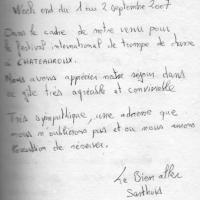 Week end du 1 au 2 septembre 2007
Dans le cadre de notre venue pour
le festival international de trompe de chasse
à CHATEAUROUX.
Nous avons apprécier notre séjour dans
ce gîte très agréable et convivial
Très sympathique, une adresse que
nous n'oublierons pas et ou nous aurons
l'occasion de revenir.
Le Bien aller